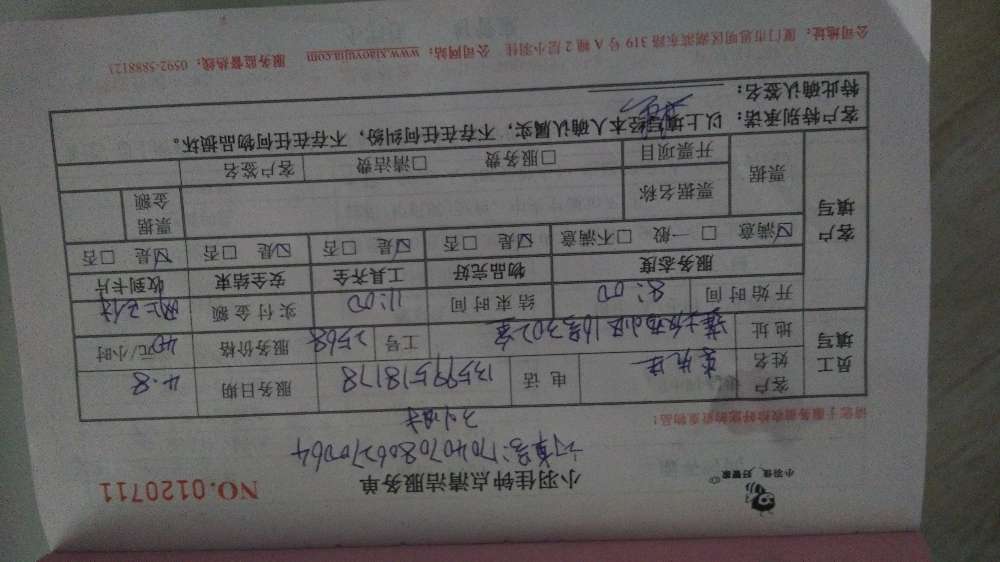 小羽佳 好管家
小羽佳钟点清洁服务单
NO.0120711
订单号:170407080620064
3小时
请您于服务前收检好您的贵重物品!
员工填写
客户姓名
电话 13599518178
服务日期 4.8
地址 16号302室
工号 2568
服务价格 40元/小时
开始时间 8:00
结束时间 11:00
实付金额 网上支付
客户填写
服务态度 物品完好 工具齐全 安全结束 收到卡片
☑满意 □一般 □不满意 ☑是 □否 ☑是 □否 ☑是 □否 ☑是 □否
票据 票据名称 票据金额
开票项目 □服务费 □清洁费 客户签名
客户特别承诺:以上填写经本人确认属实,不存在任何纠纷,不存在任何物品损坏。
特此确认签名:
公司地址:厦门市思明区湖滨东路319号A幢2层小羽佳 公司网站:www.xiaoyujia.com 服务监督热线:0592-5888121